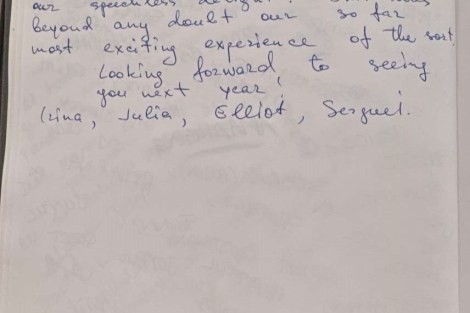 our speechless delight!
beyond any doubt our so far
most exciting experience of the sort.
Looking forward to seeing
you next year!
Irina, Julia, Elliot, Serguei.